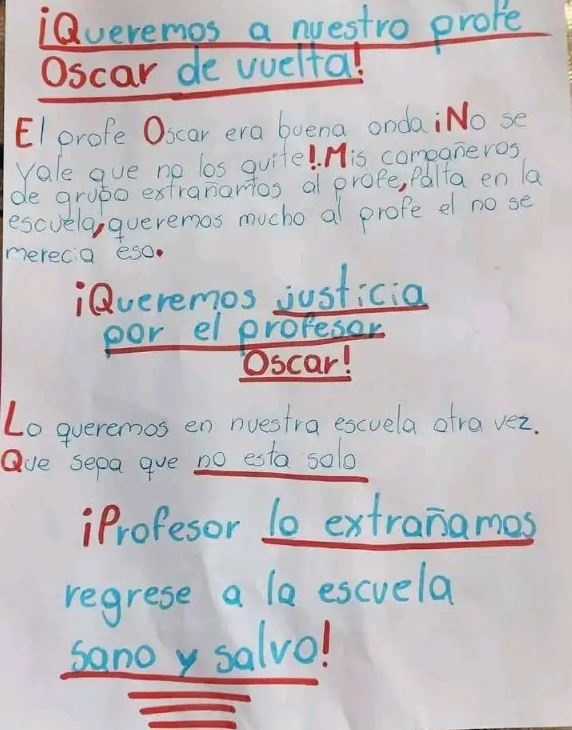 ¡Queremos a nuestro profe
Oscar de vuelta!
El profe Oscar era buena onda ¡No se
vale que no los quite!. Mis compañeros
de grupo extrañamos al profe, falta en la
escuela, queremos mucho al profe el no se
merecia eso.
¡Queremos justicia
por el profesor
Oscar!
Lo queremos en nuestra escuela otra vez.
Que sepa que no esta solo
¡Profesor lo extrañamos
regrese a la escuela
sano y salvo!